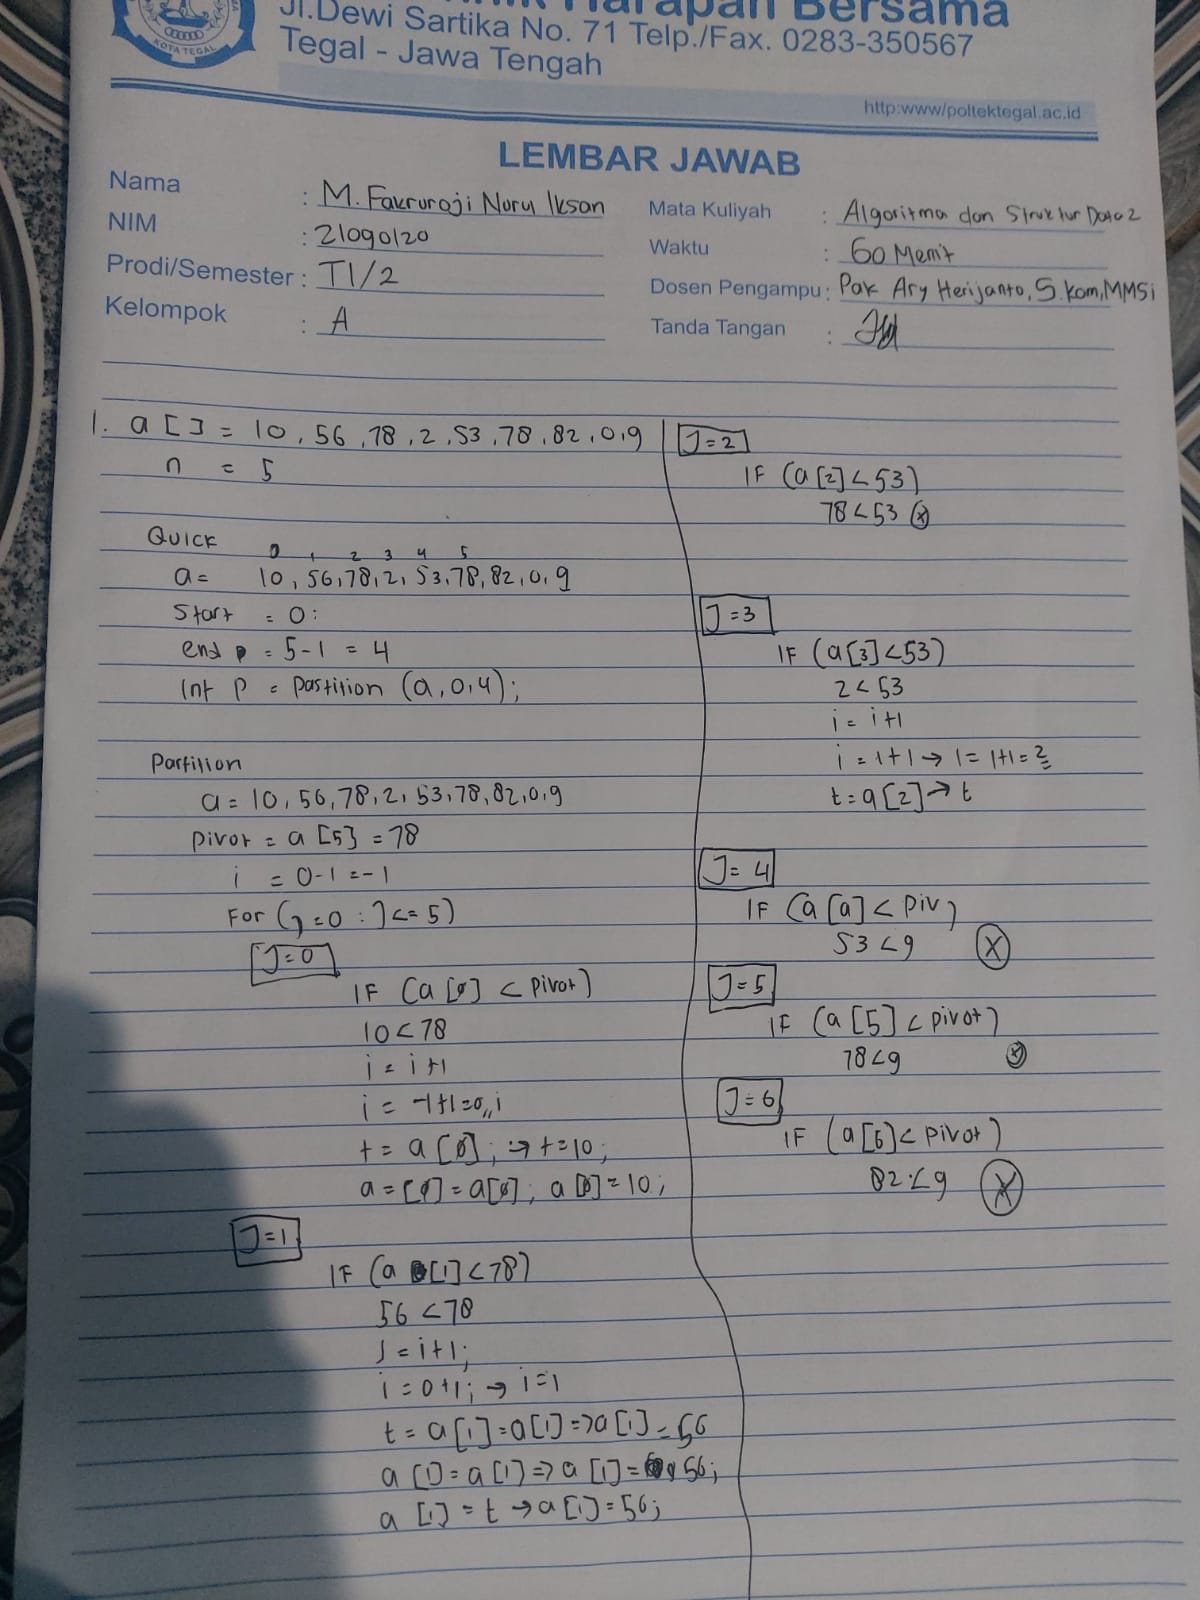 Harapan Bersama
Jl.Dewi Sartika No. 71 Telp./Fax. 0283-350567
Tegal - Jawa Tengah
KOTA TEGAL
http:www/poltektegal.ac.id
LEMBAR JAWAB
Nama : M. Fakruroji Nurul Iksan
NIM : 21090120
Prodi/Semester : TI/2
Kelompok : A
Mata Kuliyah : Algoritma dan Struktur Data 2
Waktu : 60 Menit
Dosen Pengampu : Pak Ary Herijanto, S.Kom, MMSi
Tanda Tangan :
1. a [ ] = 10, 56, 78, 2, 53, 78, 82, 0, 9
n = 5
Quick
0 1 2 3 4 5
a= 10, 56, 78, 2, 53, 78, 82, 0, 9
Start = 0:
end = 5-1 = 4
Int P = Pastition (a, 0, 4);
Partition
a = 10, 56, 78, 2, 53, 78, 82, 0, 9
Pivot = a [5] = 78
i = 0-1 = -1
For (J = 0 : J <= 5)
J=0
IF (a [0] < Pivot)
10 < 78
i = i+1
i = -1+1=0,, i
t = a [0]; → t=10;
a = [0] = a[0]; a [0] = 10;
J=1
IF (a [1] < 78)
56 < 78
J = i+1;
i = 0+1; → i=1
t = a [1] = a [1] => a [1] = 56
a [1] = a [1] => a [1] = 56;
a [1] = t → a [1] = 56;
J=2
IF (a [2] < 53)
78 < 53 (x)
J=3
IF (a [3] < 53)
2 < 53
i = i+1
i = 1+1 → 1 = 1+1 = 2
t = a [2] → t
J=4
IF (a [a] < Piv)
53 < 9 (X)
J=5
IF (a [5] < Pivot)
78 < 9 (x)
J=6
IF (a [6] < Pivot)
82 < 9 (X)